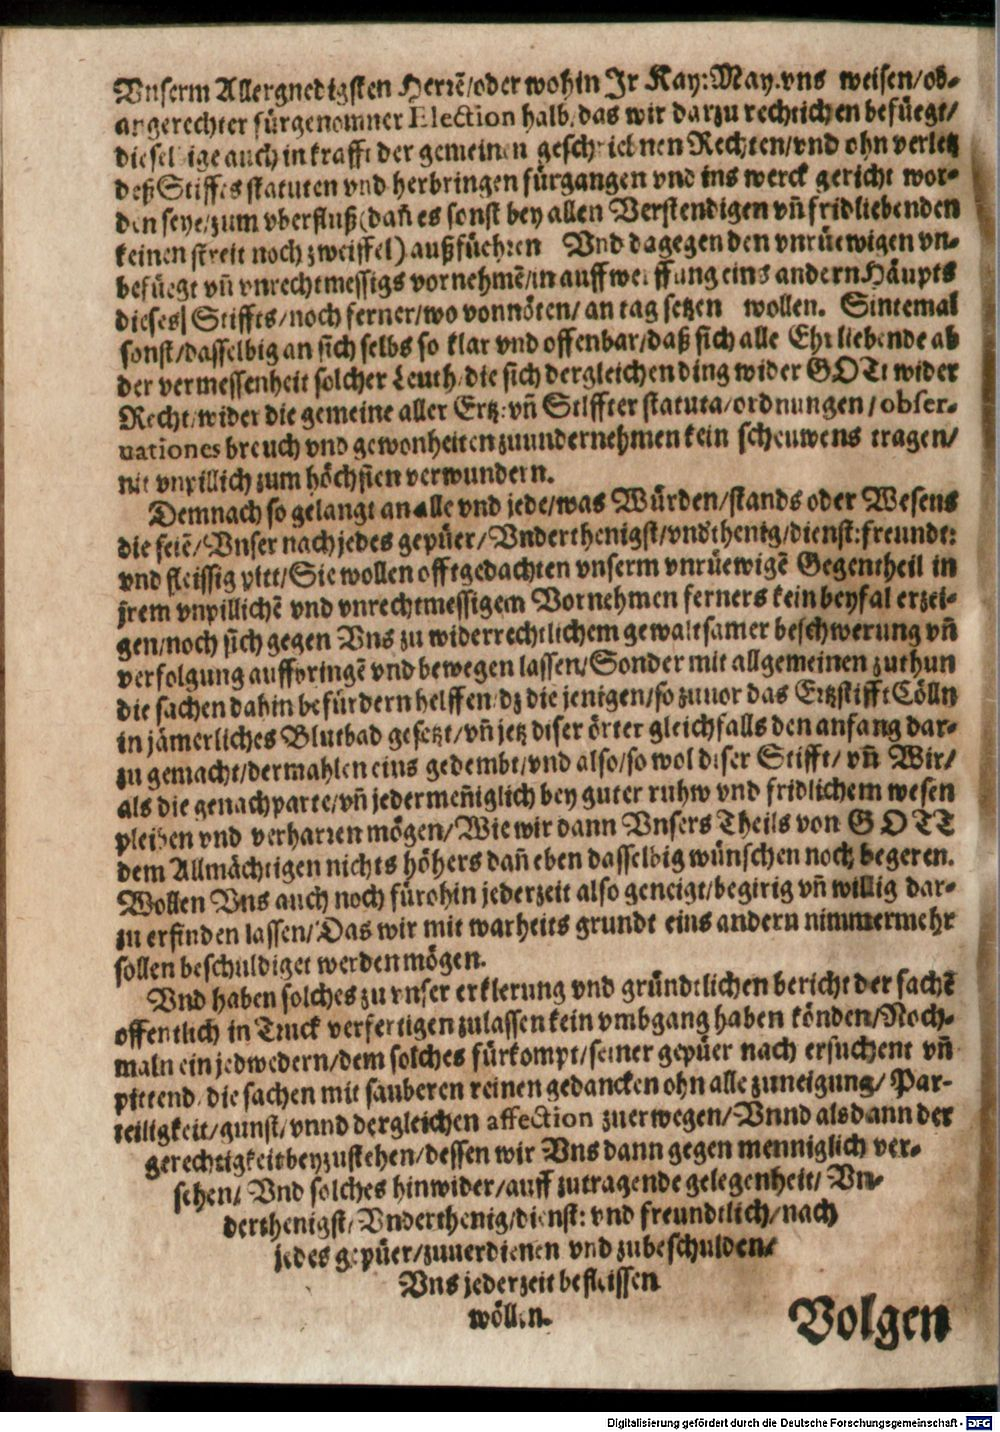 Vnserm Allergnedigsten Herrẽ/oder wohin Jr Kay: May. vns weisen/ob-
angerechter fürgenomner Election halb/das wir darzu rechtichen befüegt/
dieselbige auch in krafft der gemeinen geschriebnen Rechten/vnd ohn verletz
deß Stiffts statuten vnd herbringen fürgangen vnd ins werck gericht wor-
den seye/zum vberfluß(dañ es sonst bey allen Verstendigen vñ fridliebenden
keinen streit noch zweiffel) außfüehren Vnd dagegen den vnrüewigen vn-
befüegt vñ vnrechtmessigs vornehmẽ/in auffwerffung eins andern Häupts
dieses Stiffts/noch ferner/wo vonnöten/an tag setzen wollen. Sintemal
sonst/dasselbig an sich selbs so klar vnd offenbar/daß sich alle Ehrliebende ab
der vermessenheit solcher Leuth/die sich dergleichen ding wider GOTt wider
Recht/wider die gemeine aller Ertz: vñ Stiffter statuta/ordnungen/obser-
uationes breuch vnd gewonheiten zuundernehmen kein scheuwens tragen/
nit vnpillich zum höchsten verwundern.
Demnach so gelangt an alle vnd jede/was Würden/stands oder Wesens
die seiẽ/Vnser nach jedes gepüer/Vnderthenigst/vnd̃thenig/dienst:freundt:
vnd fleissig pitt/Sie wollen offtgedachten vnserm vnrüewigẽ Gegentheil in
jrem vnpillichẽ vnd vnrechtmessigem Vornehmen ferners kein beyfal erzei-
gen/noch sich gegen Vns zu widerrechtlichem gewaltsamer beschwerung vñ
verfolgung auffpringẽ vnd bewegen lassen/Sonder mit allgemeinen zuthun
die sachen dahin befürdern helffen/dz die jenigen/so zuuor das Ertzstifft Cölln
in jämerliches Blutbad gesetzt/vñ jetz diser örter gleichfalls den anfang dar-
zu gemacht/dermahlen eins gedembt/vnd also/so wol diser Stifft/vñ Wir/
als die genachparte/vñ jedermeñiglich bey guter ruhw vnd fridlichem wesen
pleiben vnd verharren mögen/Wie wir dann Vnsers Theils von GOTT
dem Allmächtigen nichts höhers dañ eben dasselbig wünschen noch begeren.
Wollen Vns auch noch fürohin jederzeit also geneigt/begirig vñ willig dar-
zu erfinden lassen/Das wir mit warheits grundt eins andern nimmermehr
sollen beschuldiget werden mögen.
Vnd haben solches zu vnser erklerung vnd gründtlichen bericht der sachẽ
offentlich in Truck verfertigen zulassen kein vmbgang haben könden/Noch-
maln ein jedwedern/dem solches fürkompt/seiner gepüer nach ersuchent vñ
pittend/die sachen mit sauberen reinen gedancken ohn alle zuneigung/Par-
teiligkeit/gunst/vnnd dergleichen affection zuerwegen/Vnnd als dann der
gerechtigkeit beyzustehen/dessen wir Vns dann gegen menniglich ver-
sehen/ Vnd solches hinwider/auff zutragende gelegenheit/ Vn-
derthenigst/Vnderthenig/dienst: vnd freundtlich/nach
jedes gepüer/zuuerdienen vnd zubeschulden/
Vns jederzeit befleissen
wöllen.
Volgen
Digitalisierung gefördert durch die Deutsche Forschungsgemeinschaft - DFG